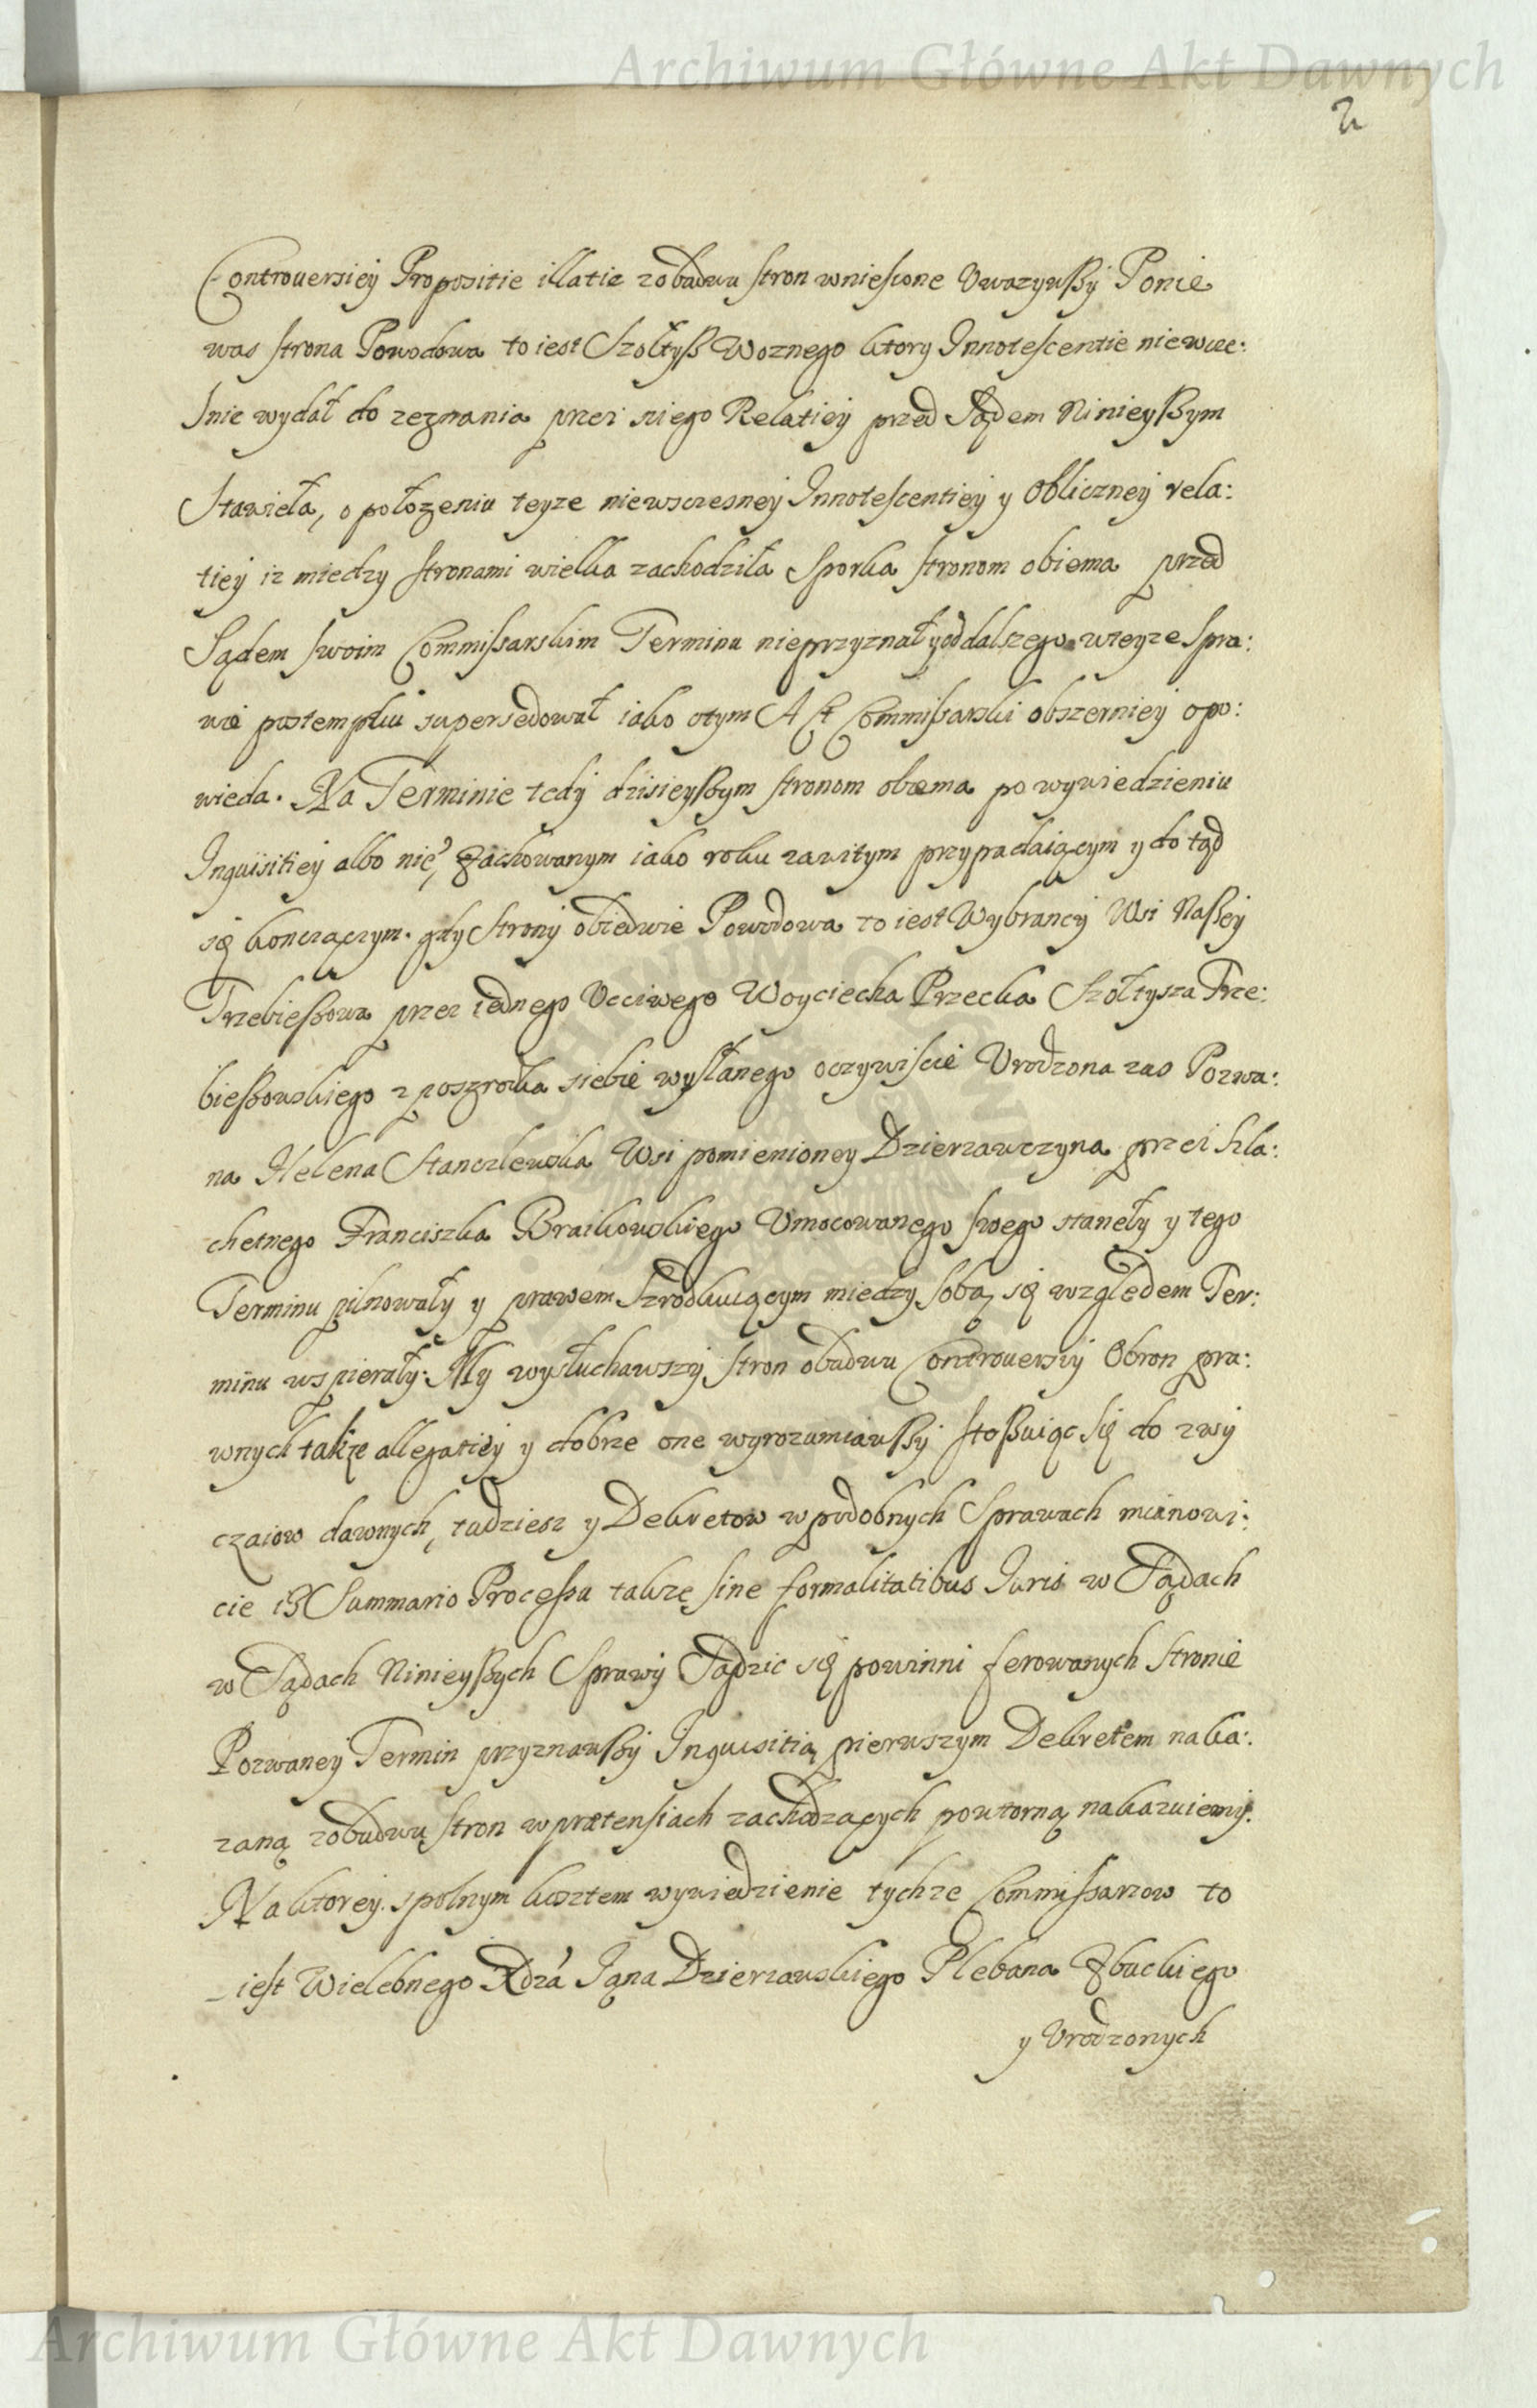 Archiwum Główne Akt Dawnych
2
Controuersiey Propositie illatie zobudwu stron wniescone Uwazywszy Ponie
was strona Powodowa to iest Szołtysz Woznego ktory Innotescentie niewcze:
snie wydał do zeznania przez niego Relatiey przed Sądem Ninieyszym
Stawieła, o połozeniu teyze niewszesney Innotescentiey y Obliczney rela:
tiey iz miedzy stronami wielka zachodziła Sporka stronom obiema przed
Sądem swoim Commissarskim Terminu nieprzyznał y od dalszego wteyze Spra:
wie postempku supersedował iako otym Act Commissarski obszerniey opo:
wieda. Na Terminie tedy dzisieyszym stronom obiema po wywiedzieniu
Inquisitiey albo nie, zachowanym iako roku zawitym przypadaiącym y do tąd
się konczączym. gdy Strony obiedwie Powodowa to iest Wybrancy Wsi Naszey
Trzebieszowa przez iednego Ucciwego Woyciecha Przecka Szołtysza Trze:
bieszowskiego z poszrodka siebie wysłanego oczywiscie Urodzona zas Pozwa:
na Helena Stanczlewska Wsi pomienioney Dzierzawczyna przez Szla:
chetnego Franciszka Braikowskiego Umocowanego swego staneły y tego
Terminu pilnowały y prawem Szrodkuiącym miedzy sobą się względem Ter:
minu wspierały. My wysłuchawszy stron obudwu Controuersiy Obron pra:
wnych takze allegatiey y dobrze one wyrozumiawszy stoszuiąc się do zwy
czaiow dawnych, tudziesz y Dekretow w podobnych Sprawach mianowi:
cie isz Summario Processu takze sine formalitatibus Iuris w Sądach
w Sądach Ninieyszych Sprawy Sądzic się powinni ferowanych stronie
Pozwaney Termin przyznawszy Inquisitią pierwszym Dekretem naka:
zaną zobudwu stron w prætensiach zachodzących powtorną nakazuiemy.
Na ktorey spolnym kosztem wywiedzienie tychze Commissarzow to
iest Wielebnego Xdza Iana Dzierzawskiego Plebana Zbuckiego
y Urodzonych
Archiwum Główne Akt Dawnych